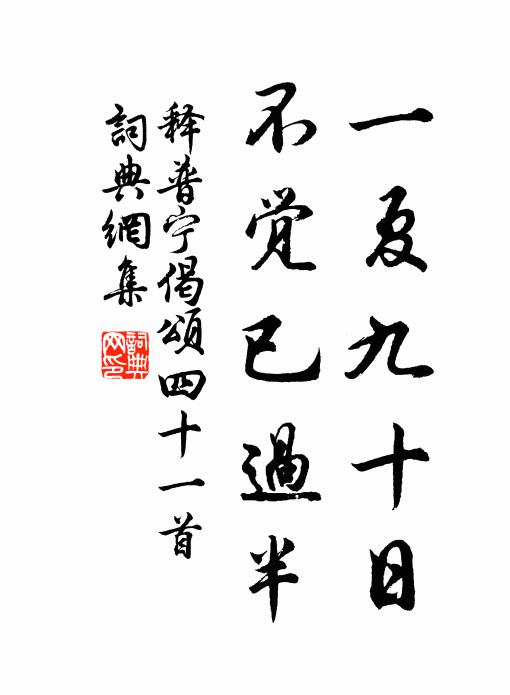 一夏九十日
不觉已過半
释普宁偈頌四十一首
詞典網集
詞典網印